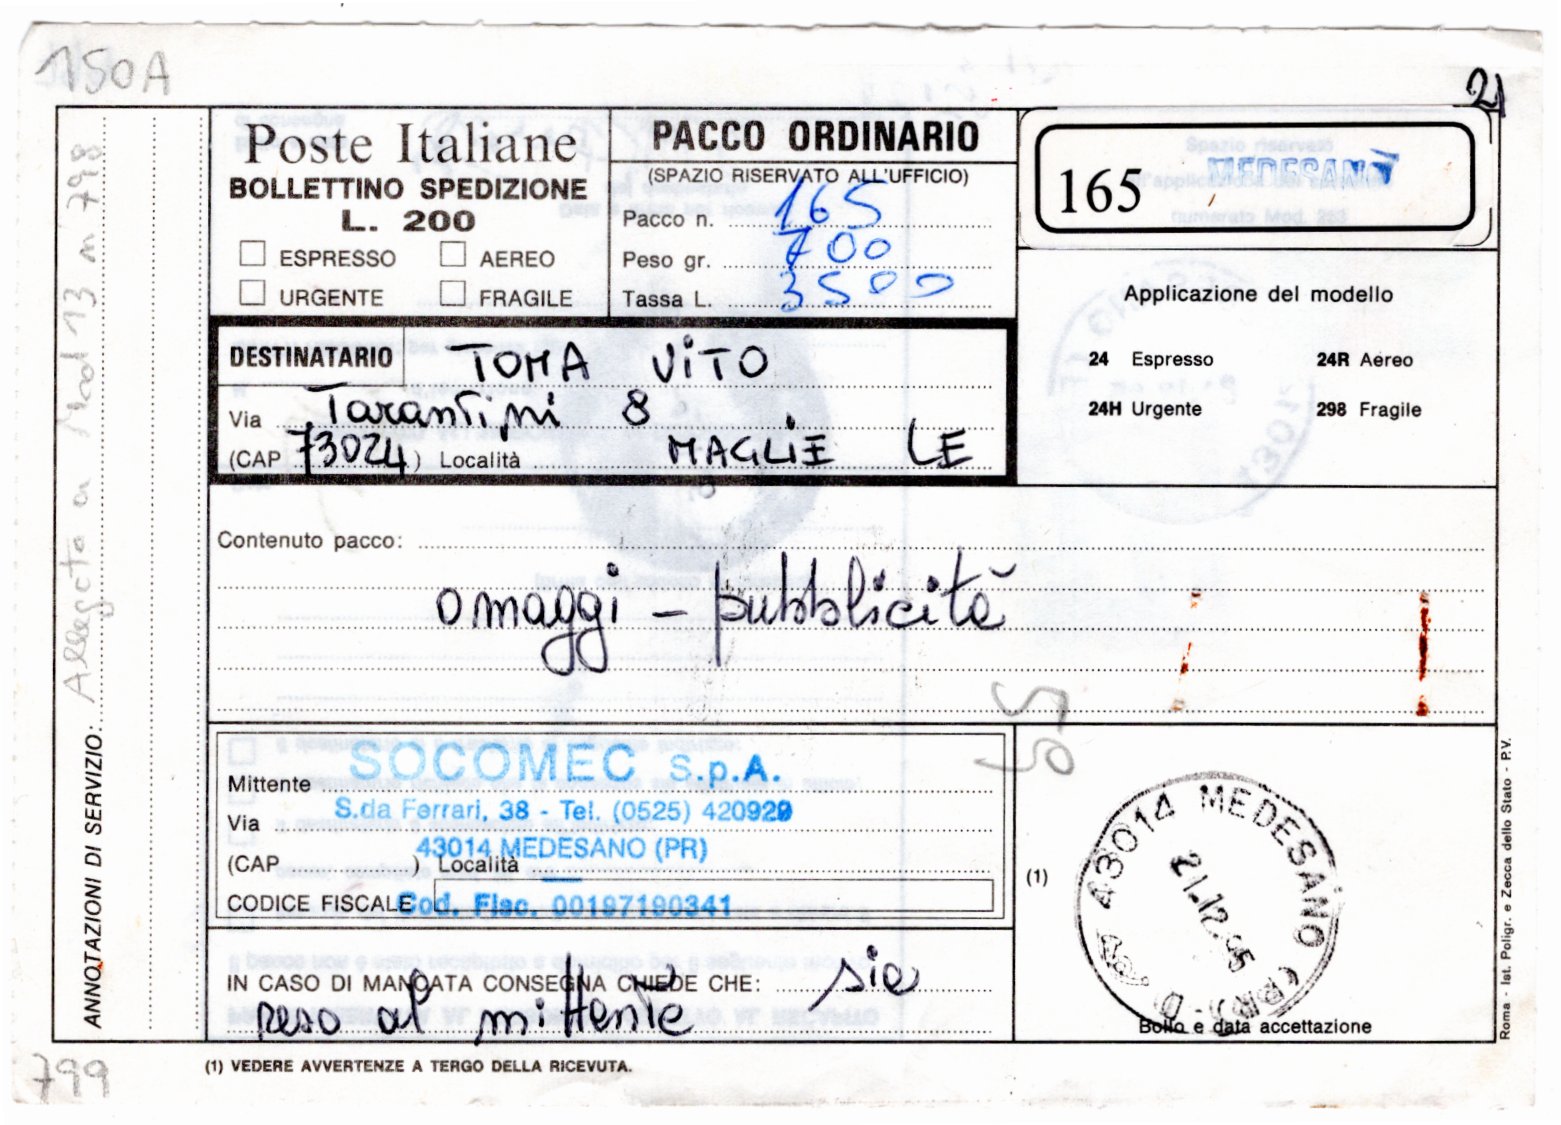 150A
21
Poste Italiane
BOLLETTINO SPEDIZIONE
L. 200
ESPRESSO AEREO
URGENTE FRAGILE
PACCO ORDINARIO
(SPAZIO RISERVATO ALL'UFFICIO)
Pacco n. 165
Peso gr. 700
Tassa L. 3500
165 MEDESANO
Applicazione del modello
24 Espresso 24R Aereo
24H Urgente 298 Fragile
DESTINATARIO TOMA ViTO
Via Tarantini 8
(CAP 73024) Località MAGLiE LE
Contenuto pacco:
omaggi - pubblicità
95
Mittente SOCOMEC S.p.A.
Via S.da Ferrari, 38 - Tel. (0525) 420929
(CAP ) Località 43014 MEDESANO (PR)
CODICE FISCALE Cod. Fisc. 00197190341
IN CASO DI MANCATA CONSEGNA CHIEDE CHE: sia
reso al mittente
(1)
43014 MEDESANO (PR)
21.12.95
Bollo e data accettazione
(1) VEDERE AVVERTENZE A TERGO DELLA RICEVUTA.
ANNOTAZIONI DI SERVIZIO: Allegato a Mod 13 n 798
799
Roma - Ist. Poligr. e Zecca dello Stato - P.V.